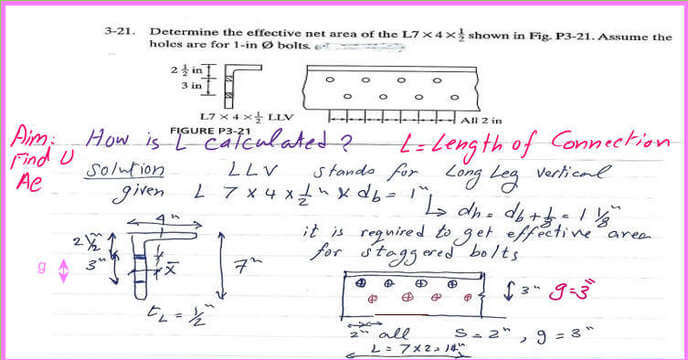 3-21. Determine the effective net area of the L7 × 4 × ½ shown in Fig. P3-21. Assume the
holes are for 1-in Ø bolts.
2 ½ in
3 in
L7 × 4 × ½ LLV
All 2 in
FIGURE P3-21
Aim: How is L calculated? L = Length of Connection
Find U
Ae
Solution LLV stands for Long Leg Vertical
given L 7 x 4 x ½" & db = 1"
dh = db + 1/8 = 1 1/8"
it is required to get effective area
for staggered bolts
4"
2 ½"
3"
g
x̄
7"
tL = ½"
3" g=3"
2" all S = 2", g = 3"
L = 7x2 = 14"